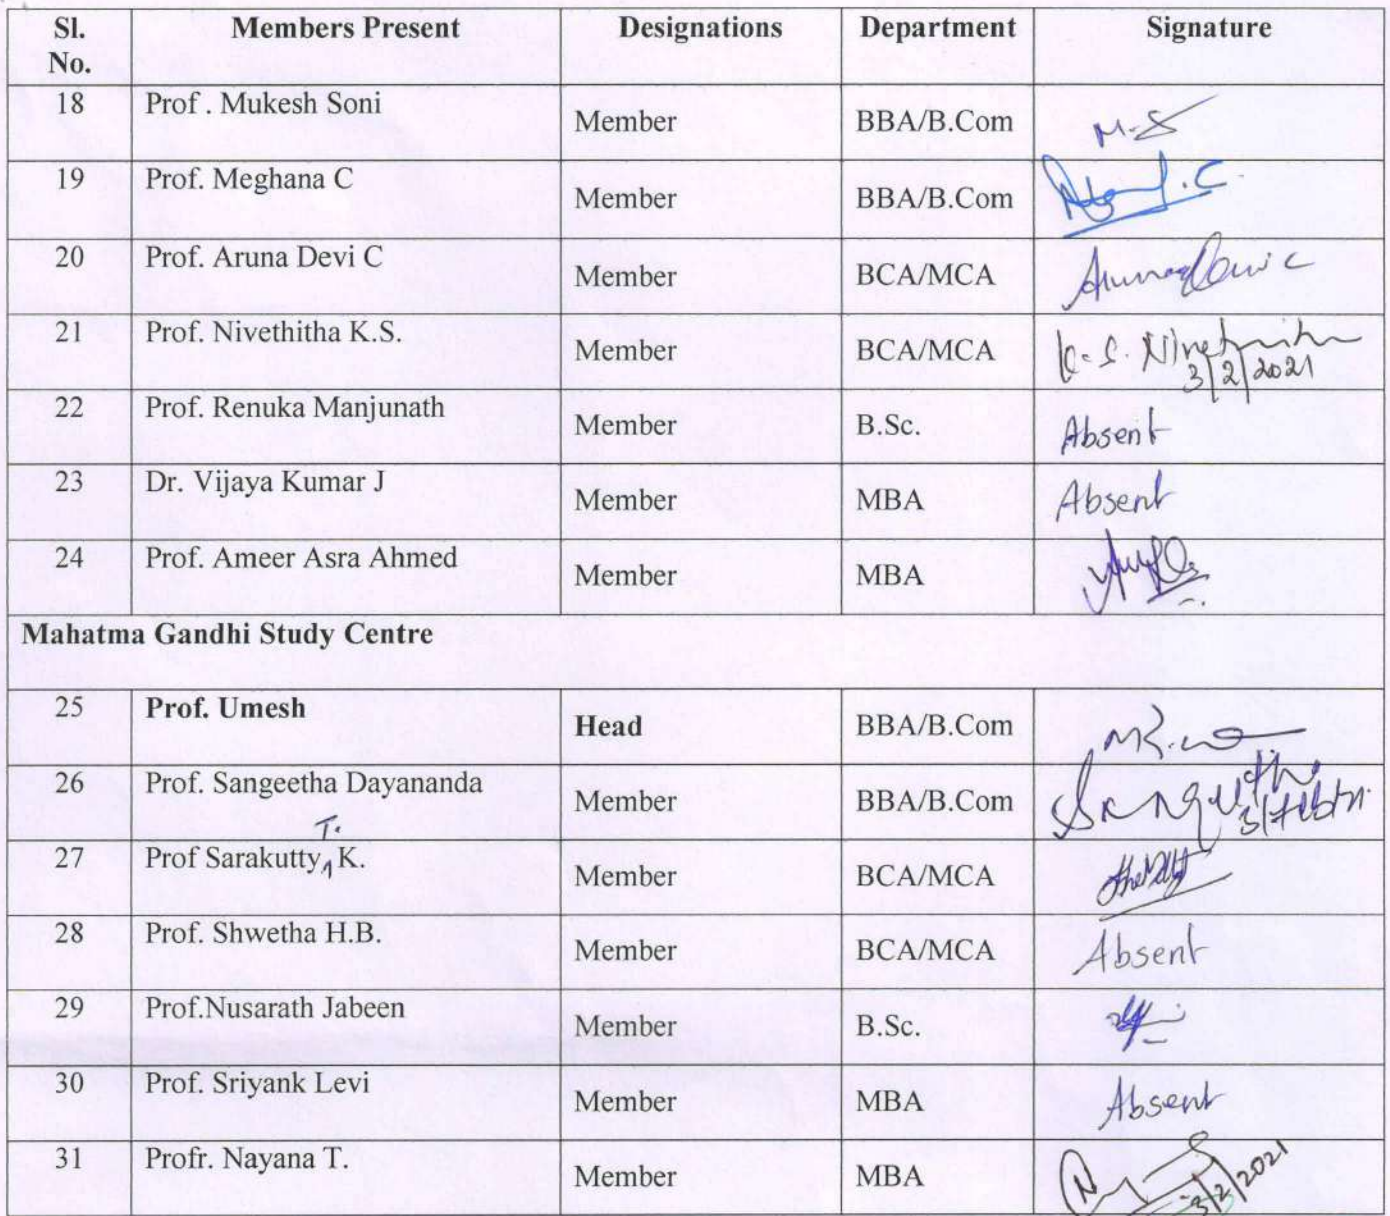 Sl. No. Members Present Designations Department Signature
18 Prof . Mukesh Soni Member BBA/B.Com M-S
19 Prof. Meghana C Member BBA/B.Com
20 Prof. Aruna Devi C Member BCA/MCA Aruna Devi C
21 Prof. Nivethitha K.S. Member BCA/MCA K. S. Nivethitha
3/2/2021
22 Prof. Renuka Manjunath Member B.Sc. Absent
23 Dr. Vijaya Kumar J Member MBA Absent
24 Prof. Ameer Asra Ahmed Member MBA
Mahatma Gandhi Study Centre
25 Prof. Umesh Head BBA/B.Com
26 Prof. Sangeetha Dayananda Member BBA/B.Com Sangeetha
T.
27 Prof Sarakutty K. Member BCA/MCA
28 Prof. Shwetha H.B. Member BCA/MCA Absent
29 Prof.Nusarath Jabeen Member B.Sc.
30 Prof. Sriyank Levi Member MBA Absent
31 Profr. Nayana T. Member MBA
3/2/2021